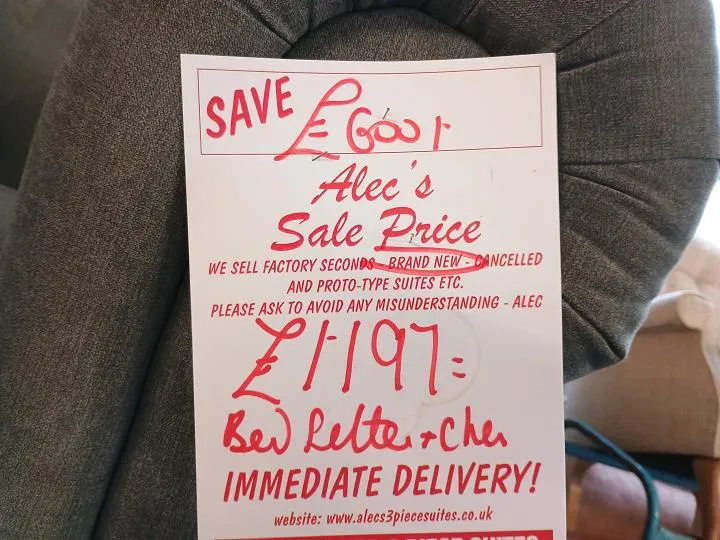 SAVE £600+
Alec's
Sale Price
WE SELL FACTORY SECONDS - BRAND NEW - CANCELLED
AND PROTO-TYPE SUITES ETC.
PLEASE ASK TO AVOID ANY MISUNDERSTANDING - ALEC
£1197=
Bed Settee + Chr
IMMEDIATE DELIVERY!
website: www.alecs3piecesuites.co.uk
PIECE SUITES